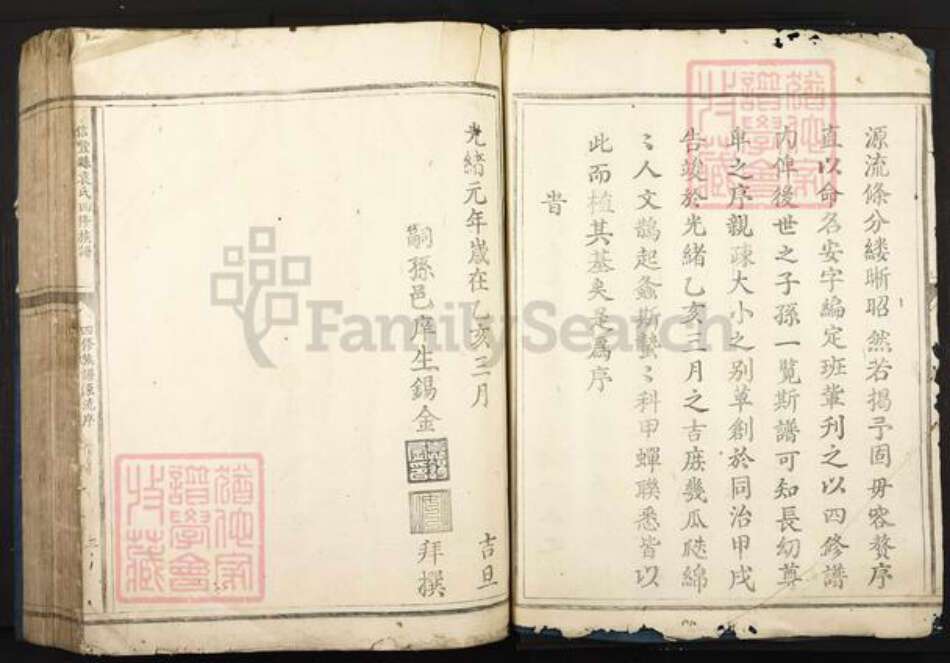 源流條分縷晰昭然若揭予固毋容贅序
直以命名安字編定班輩刊之以四修譜
內俾後世之子孫一覽斯譜可知長幼尊
卑之序親疎大小之别草創於同治甲戌
告竣於光緒乙亥三月之吉庶幾瓜瓞綿
〻人文鵲起螽斯蟄〻科甲蟬聯悉皆以
此而植其基矣是爲序
旹
光緒元年歲在乙亥三月 吉旦
嗣孫邑庠生錫金 拜撰
信豐縣袁氏四修族譜
四修族譜源流序
FamilySearch
猶他家譜學會收藏
猶他家譜學會收藏